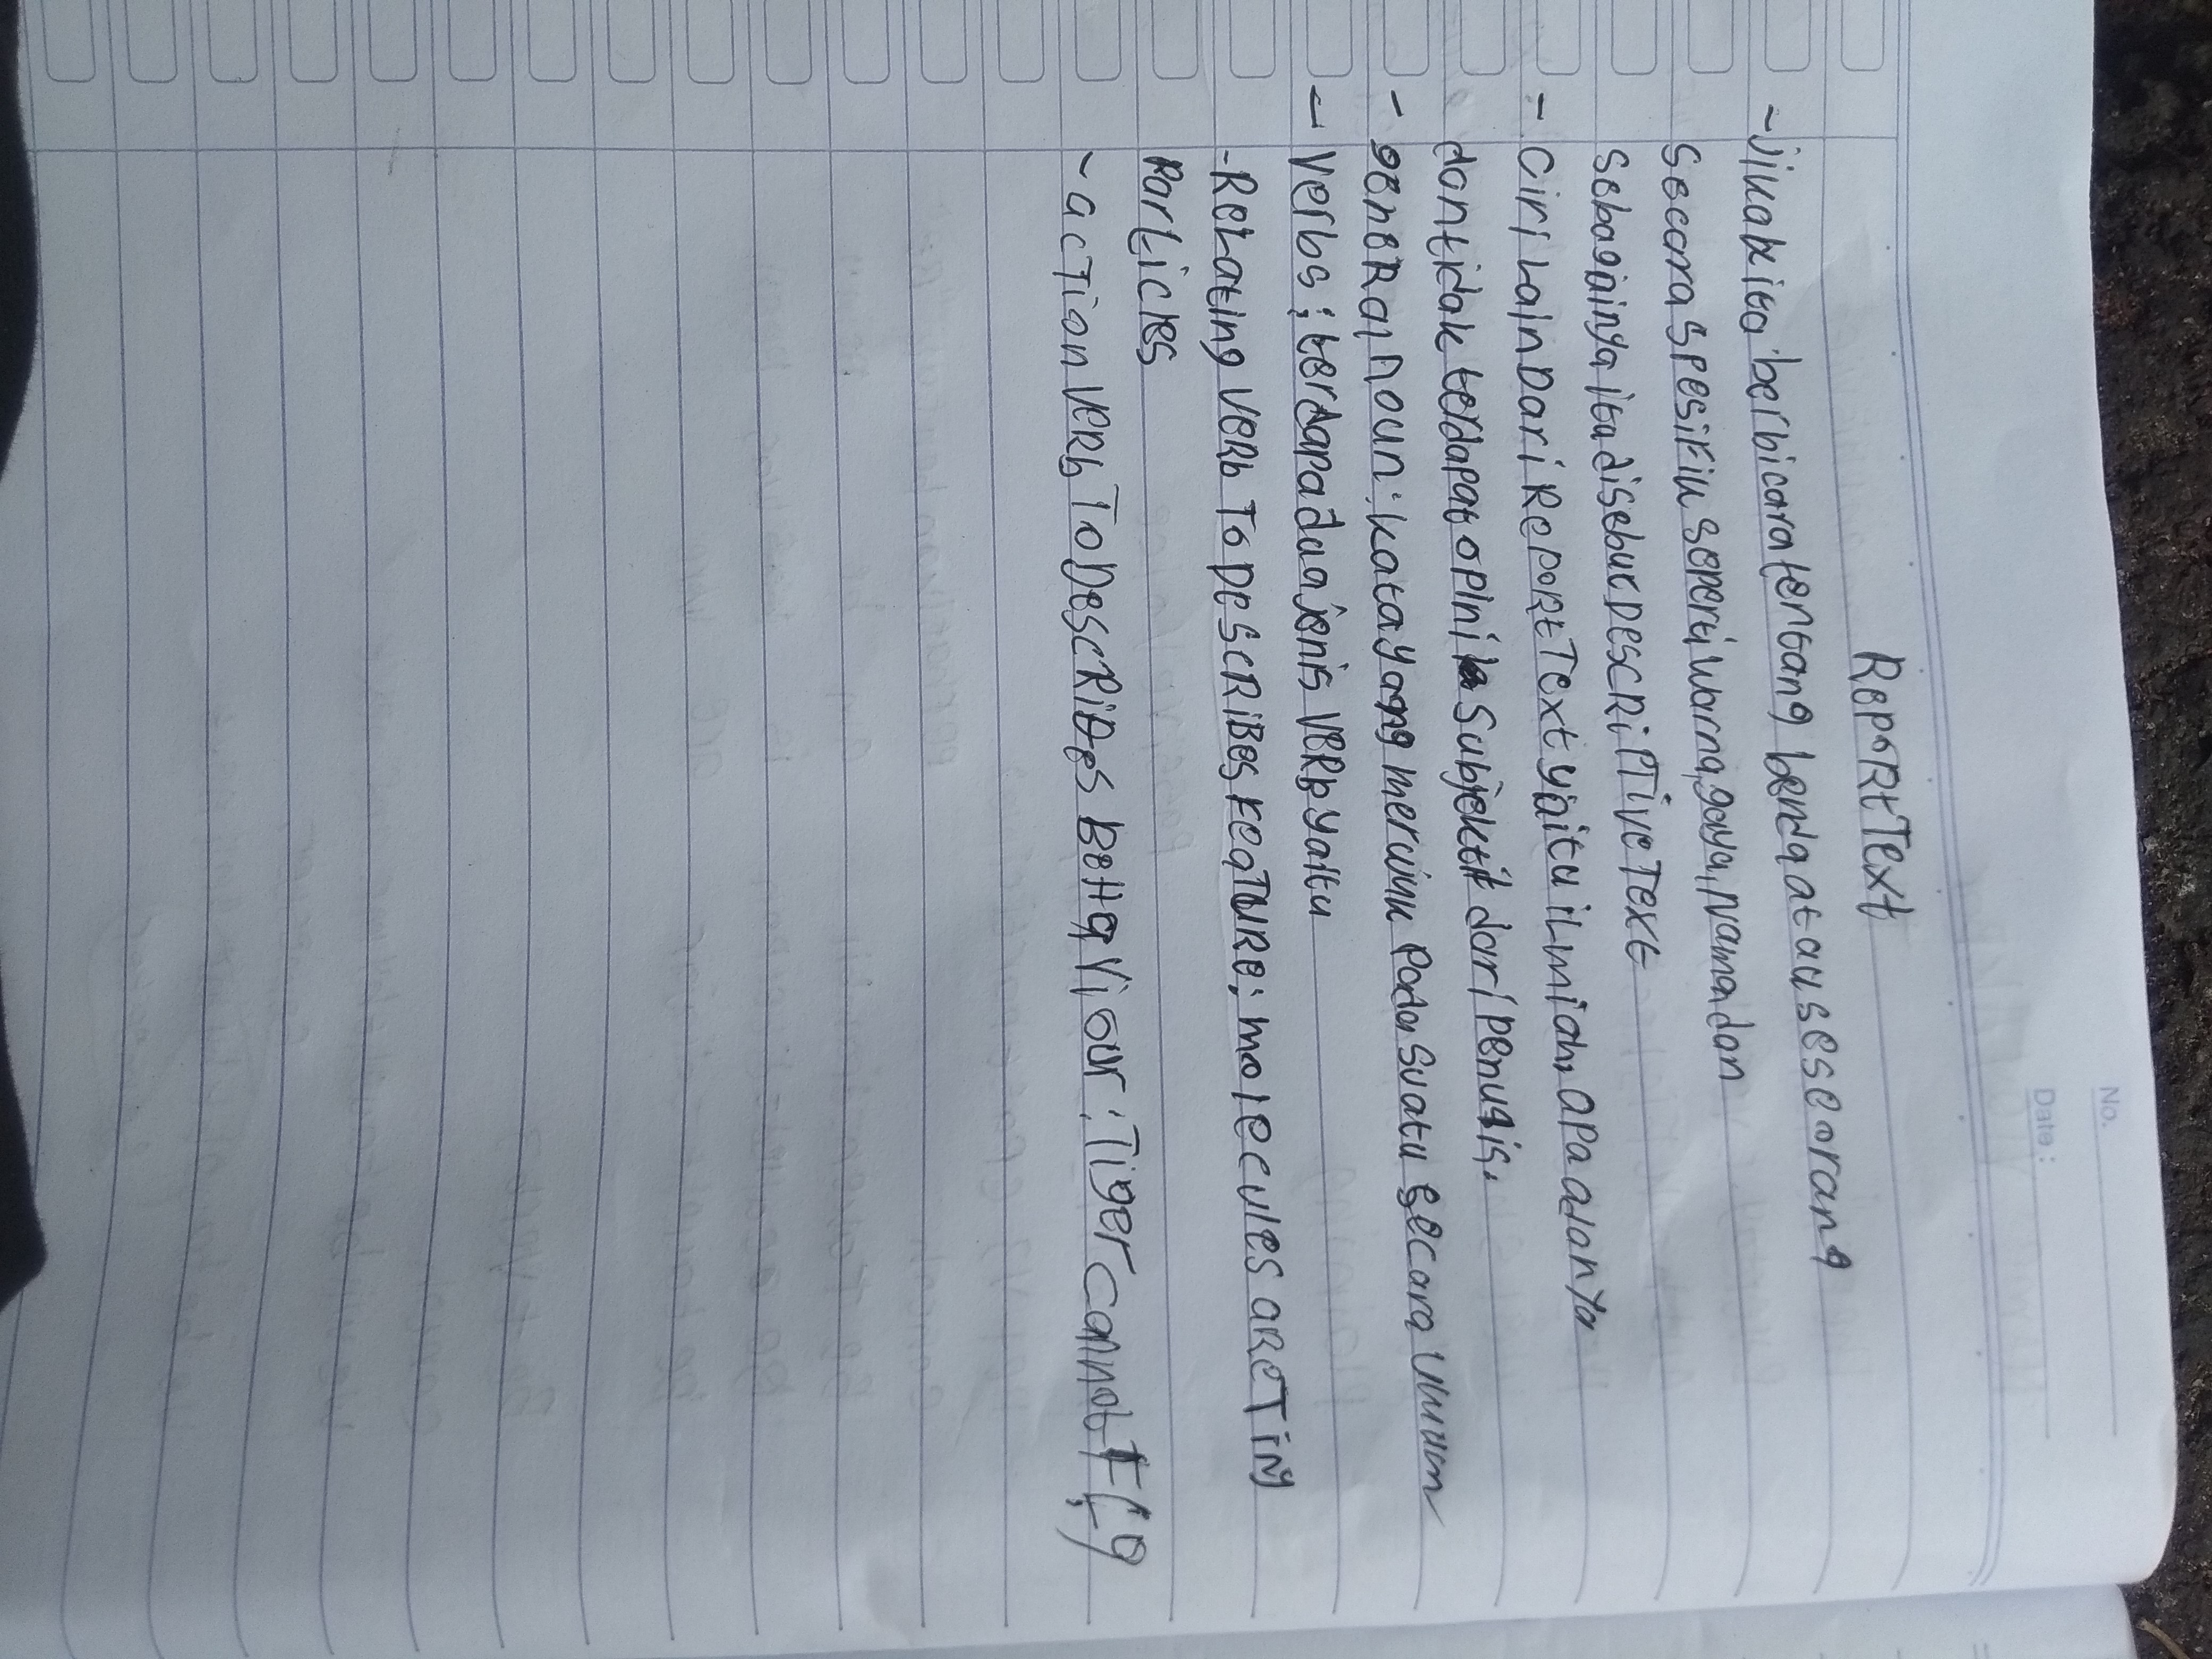 No.
Date :
Report Text
~ Jika kita berbicara tentang benda atau seseorang
secara spesifik seperti warna, gaya, nama dan
sebagainya itu disebut Descriptive Text
- Ciri Lain Dari Report Text yaitu ilmiah, apa adanya
dan tidak terdapat opini subjektif dari penulis.
- general noun : kata yang merujuk pada suatu secara umum
- Verbs : terdapat dua jenis verb yaitu
- Relating verb To Describes Feature : molecules are Tiny
Particles
~ action verb To Describes Behaviour : Tiger cannot Fly